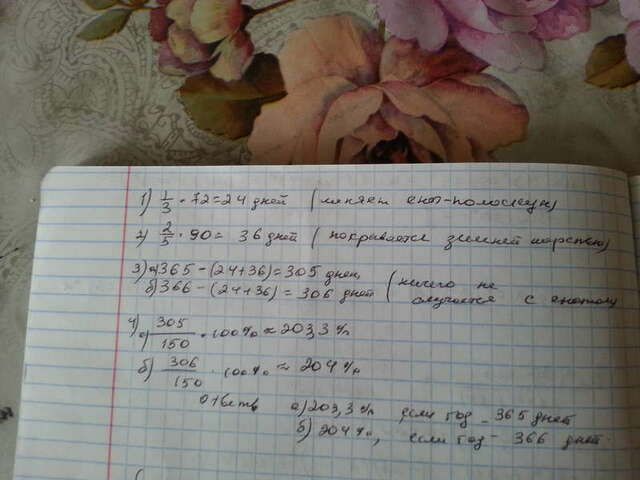 1) 1/3 · 72 = 24 дней (линяет енот-полоскун)
2) 2/5 · 90 = 36 дней (покрывается зимней шерстью)
3) а) 365 - (24+36) = 305 дней
б) 366 - (24+36) = 306 дней (ничего не случается с енотом)
4) а) 305/150 · 100% ≈ 203,3%
б) 306/150 · 100% ≈ 204%
Ответ а) 203,3% если год - 365 дней
б) 204%, если год - 366 дней.